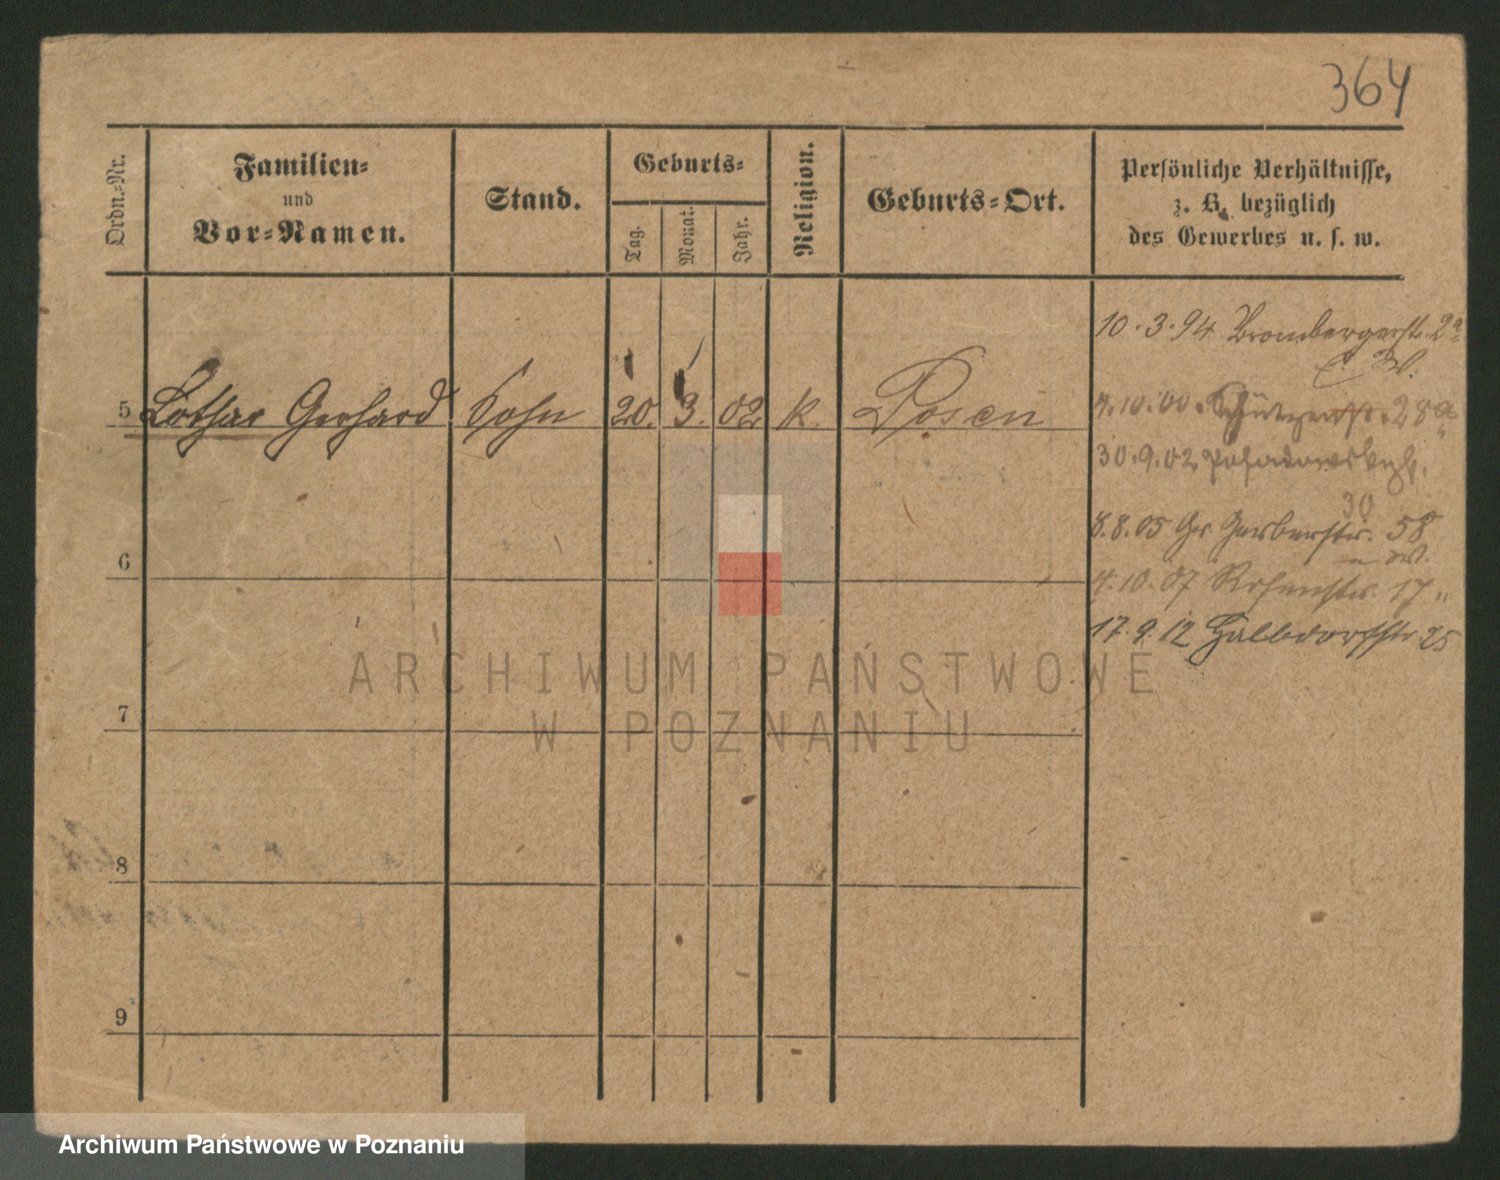 364
Ordn.-Nr.
Familien-
und
Vor-Namen.
Stand.
Geburts-
Tag.
Monat.
Jahr.
Religion.
Geburts-Ort.
Persönliche Verhältnisse,
z. B. bezüglich
des Gewerbes u. s. w.
10.3.94 Brombergerstr. 2a
5 Lothar Gerhard Sohn 20. 3. 02 k. Posen
4.10.00. Schützenstr. 28a
30.9.02 Posadowskystr.
30
8.8.05 Gr. Gerberstr. 58
6
4.10.07 Rosenstr. 17 "
17.9.12 Halbdorfstr 25
ARCHIWUM PAŃSTWOWE
W POZNANIU
7
8
9
Archiwum Państwowe w Poznaniu